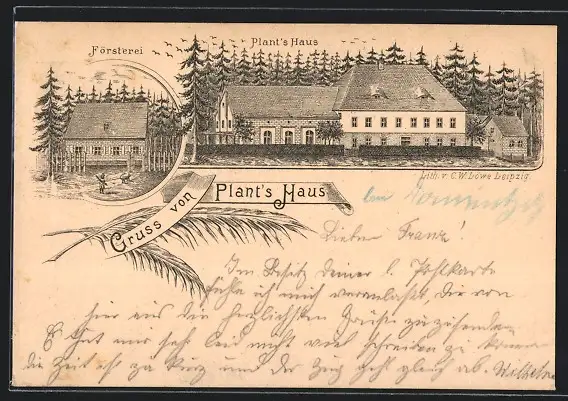 Försterei
Plant's Haus
Lith. v. C.W. Löwe Leipzig.
Gruss von Plant's Haus
bei
Lieber Franz!
Im Besitz deiner l. Postkarte
fühle ich mich veranlasst, dir von
hier aus die herzlichsten Grüße zu
Es thut mir sehr leid nicht viel schreiben zu können
die Zeit ist zu kurz und der Zug geht gleich ab. Wilhelm